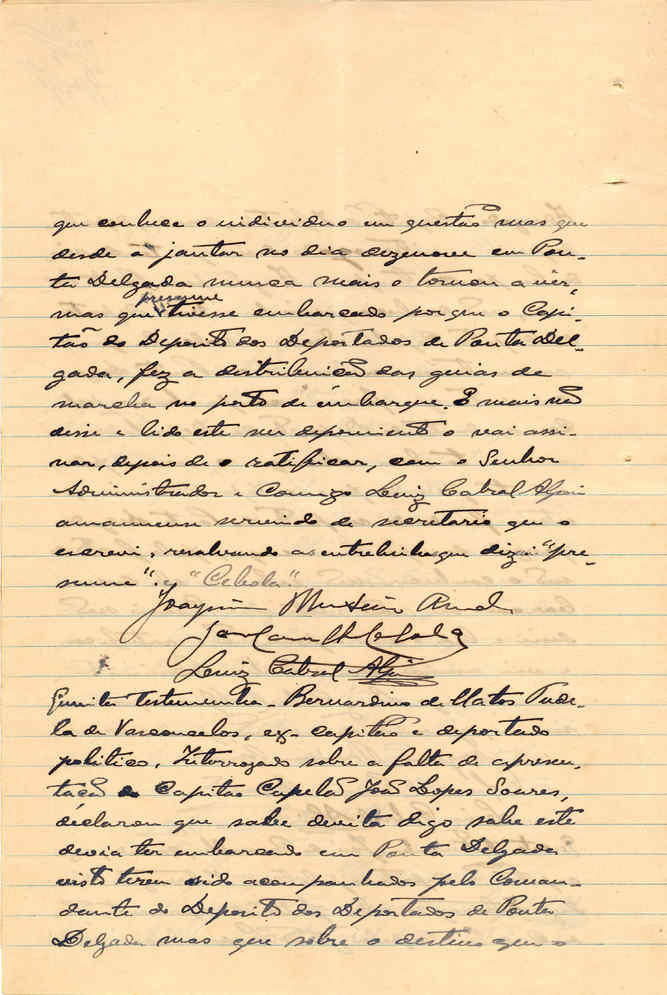 que conhece o individuo em questão mas que
desde o jantar no dia dezenove em Pon-
ta Delgada nunca mais o tornou a vêr,
presume
mas que tivesse embarcado porque o Capi-
tão do Deposito dos Deportados de Ponta Del-
gada, fez a distribuição das guias de
marcha no porto de embarque. E mais não
disse e lido este seu depoimento o vai assi-
nar, depois de o ratificar, com o Senhor
Administrador e Comigo Luiz Cabral
amanuense servindo de secretario que o
escrevi, resalvando as entrelinha que diz: "pre-
sume" e "Cebola".
Joaquim
Luiz Cabral
Quinta Testemunha - Bernardino de Matos Tude-
la de Vasconcelos, ex-capitão e deportado
politico. Interrogado sobre a falta de apresen-
tação do Capitão Capelão João Lopes Soares,
declarou que sabe devita digo sabe este
devia ter embarcado em Ponta Delgada
visto terem sido acompanhados pelo Coman-
dante do Deposito dos Deportados de Ponta
Delgada mas que sobre o destino que o